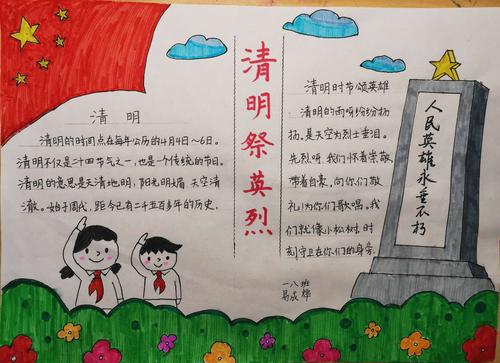 清明
清明的时间点在每年公历的4月4日～6日。
清明不仅是二十四节气之一,也是个传统的节日。
清明的意思是天清地明,阳光明媚 天空清
澈。始于周代,距今已有二千五百多年的历史。
清明祭英烈
清明时节颂英雄
清明的雨呀纷纷扬
扬。是天空为烈士垂泪。
先烈呀 我们怀着崇敬
带着自豪,向你们敬
礼,为你们歌唱。我
们就像小松树 时
刻守卫在你们的身旁
一八班
易成烨
人民英雄永垂不朽